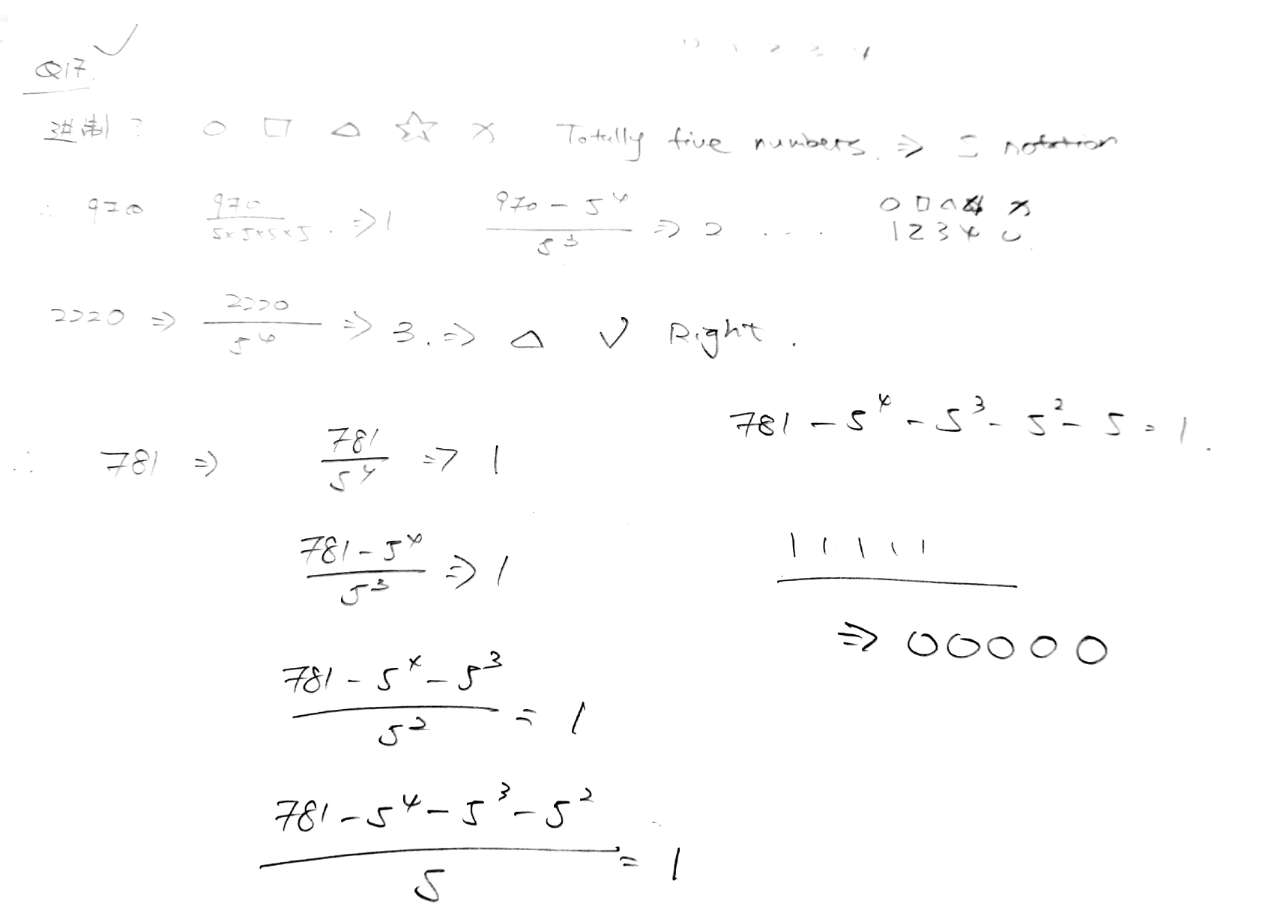 Q17.
进制? ○ □ △ ☆ × Totally five numbers. ⇒ 5 notation
∴ 970 970/(5×5×5×5). ⇒ 1 (970 - 5^4)/5^3 ⇒ 2 .... ○ □ △ ☆ ×
1 2 3 4 0
2220 ⇒ 2220/5^4 ⇒ 3. ⇒ △ √ Right.
781 - 5^4 - 5^3 - 5^2 - 5 = 1.
∴ 781 ⇒ 781/5^4 ⇒ 1
(781 - 5^4)/5^3 ⇒ 1
1 1 1 1 1
⇒ ○ ○ ○ ○ ○
(781 - 5^4 - 5^3)/5^2 = 1
(781 - 5^4 - 5^3 - 5^2)/5 = 1